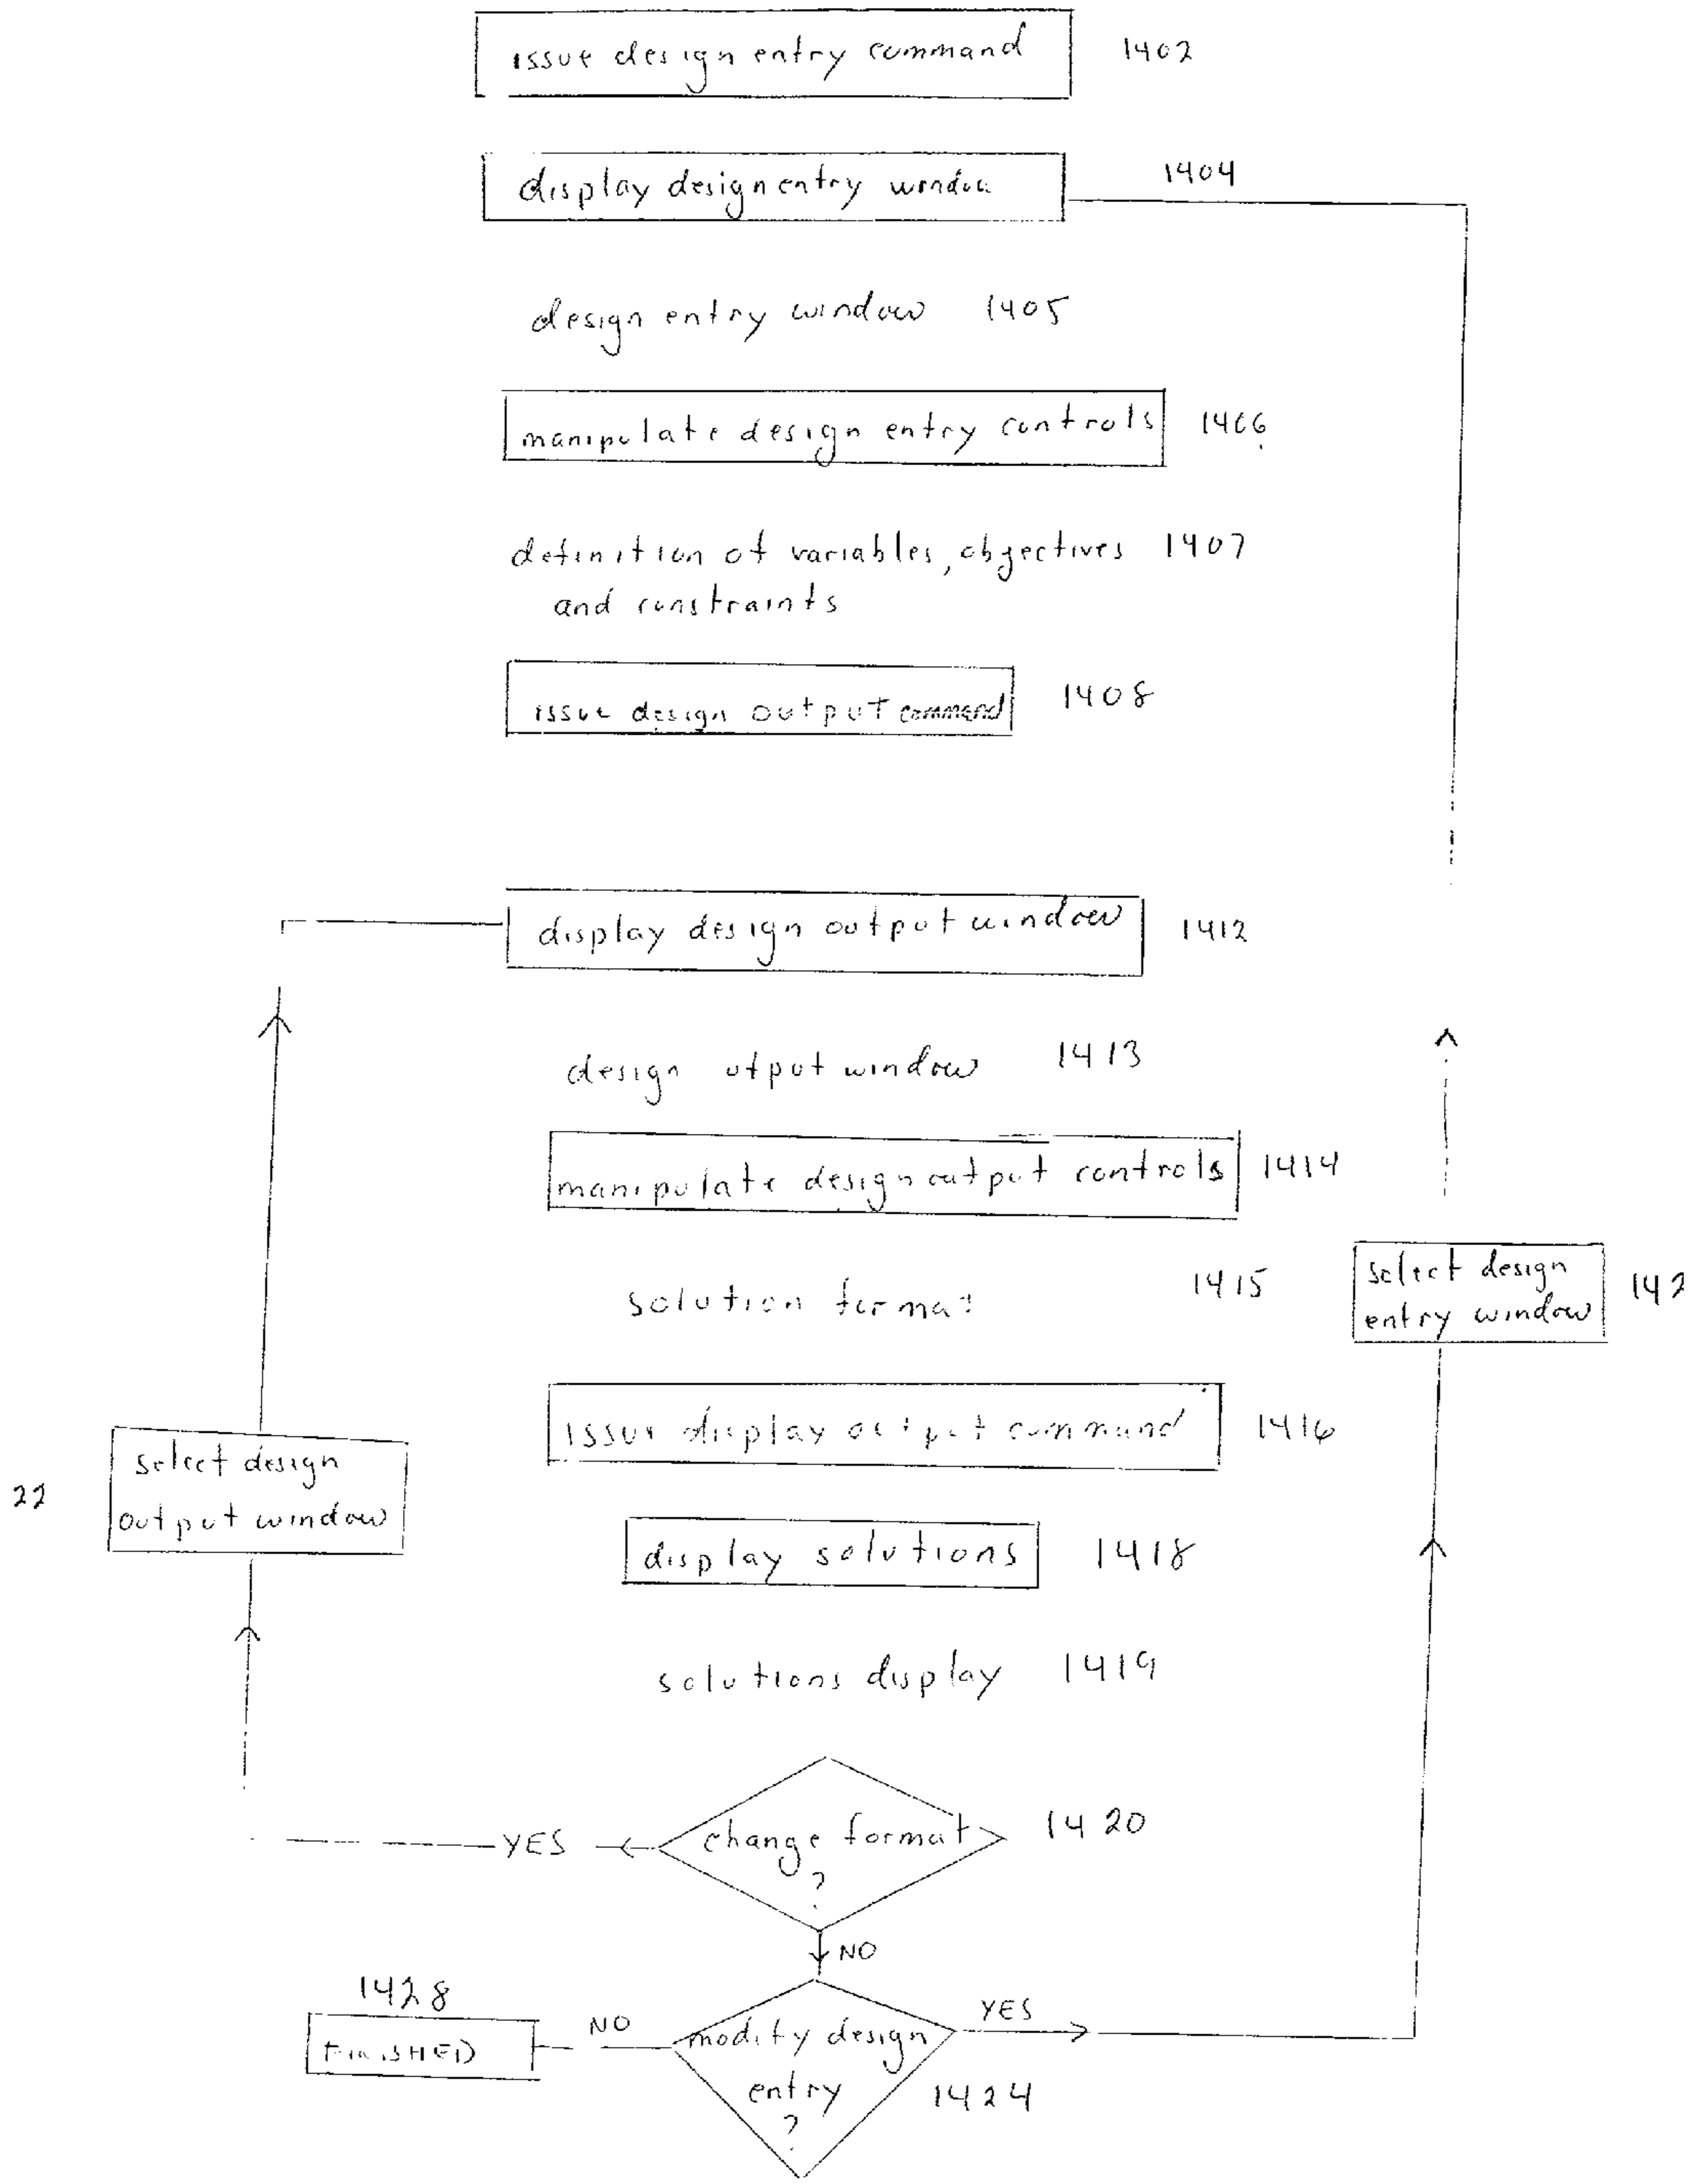 issue design entry command 1402
display design entry window 1404
design entry window 1405
manipulate design entry controls 1406
definition of variables, objectives 1407
and constraints
issue design output command 1408
display design output window 1412
design utput window 1413
manipulate design output controls 1414
solution format 1415
select design
entry window 142
issue display output command 1416
select design
output window
22
display solutions 1418
solutions display 1419
change format 1420
?
YES
NO
1428
FINISHED
NO
modify design
entry
?
YES
1424